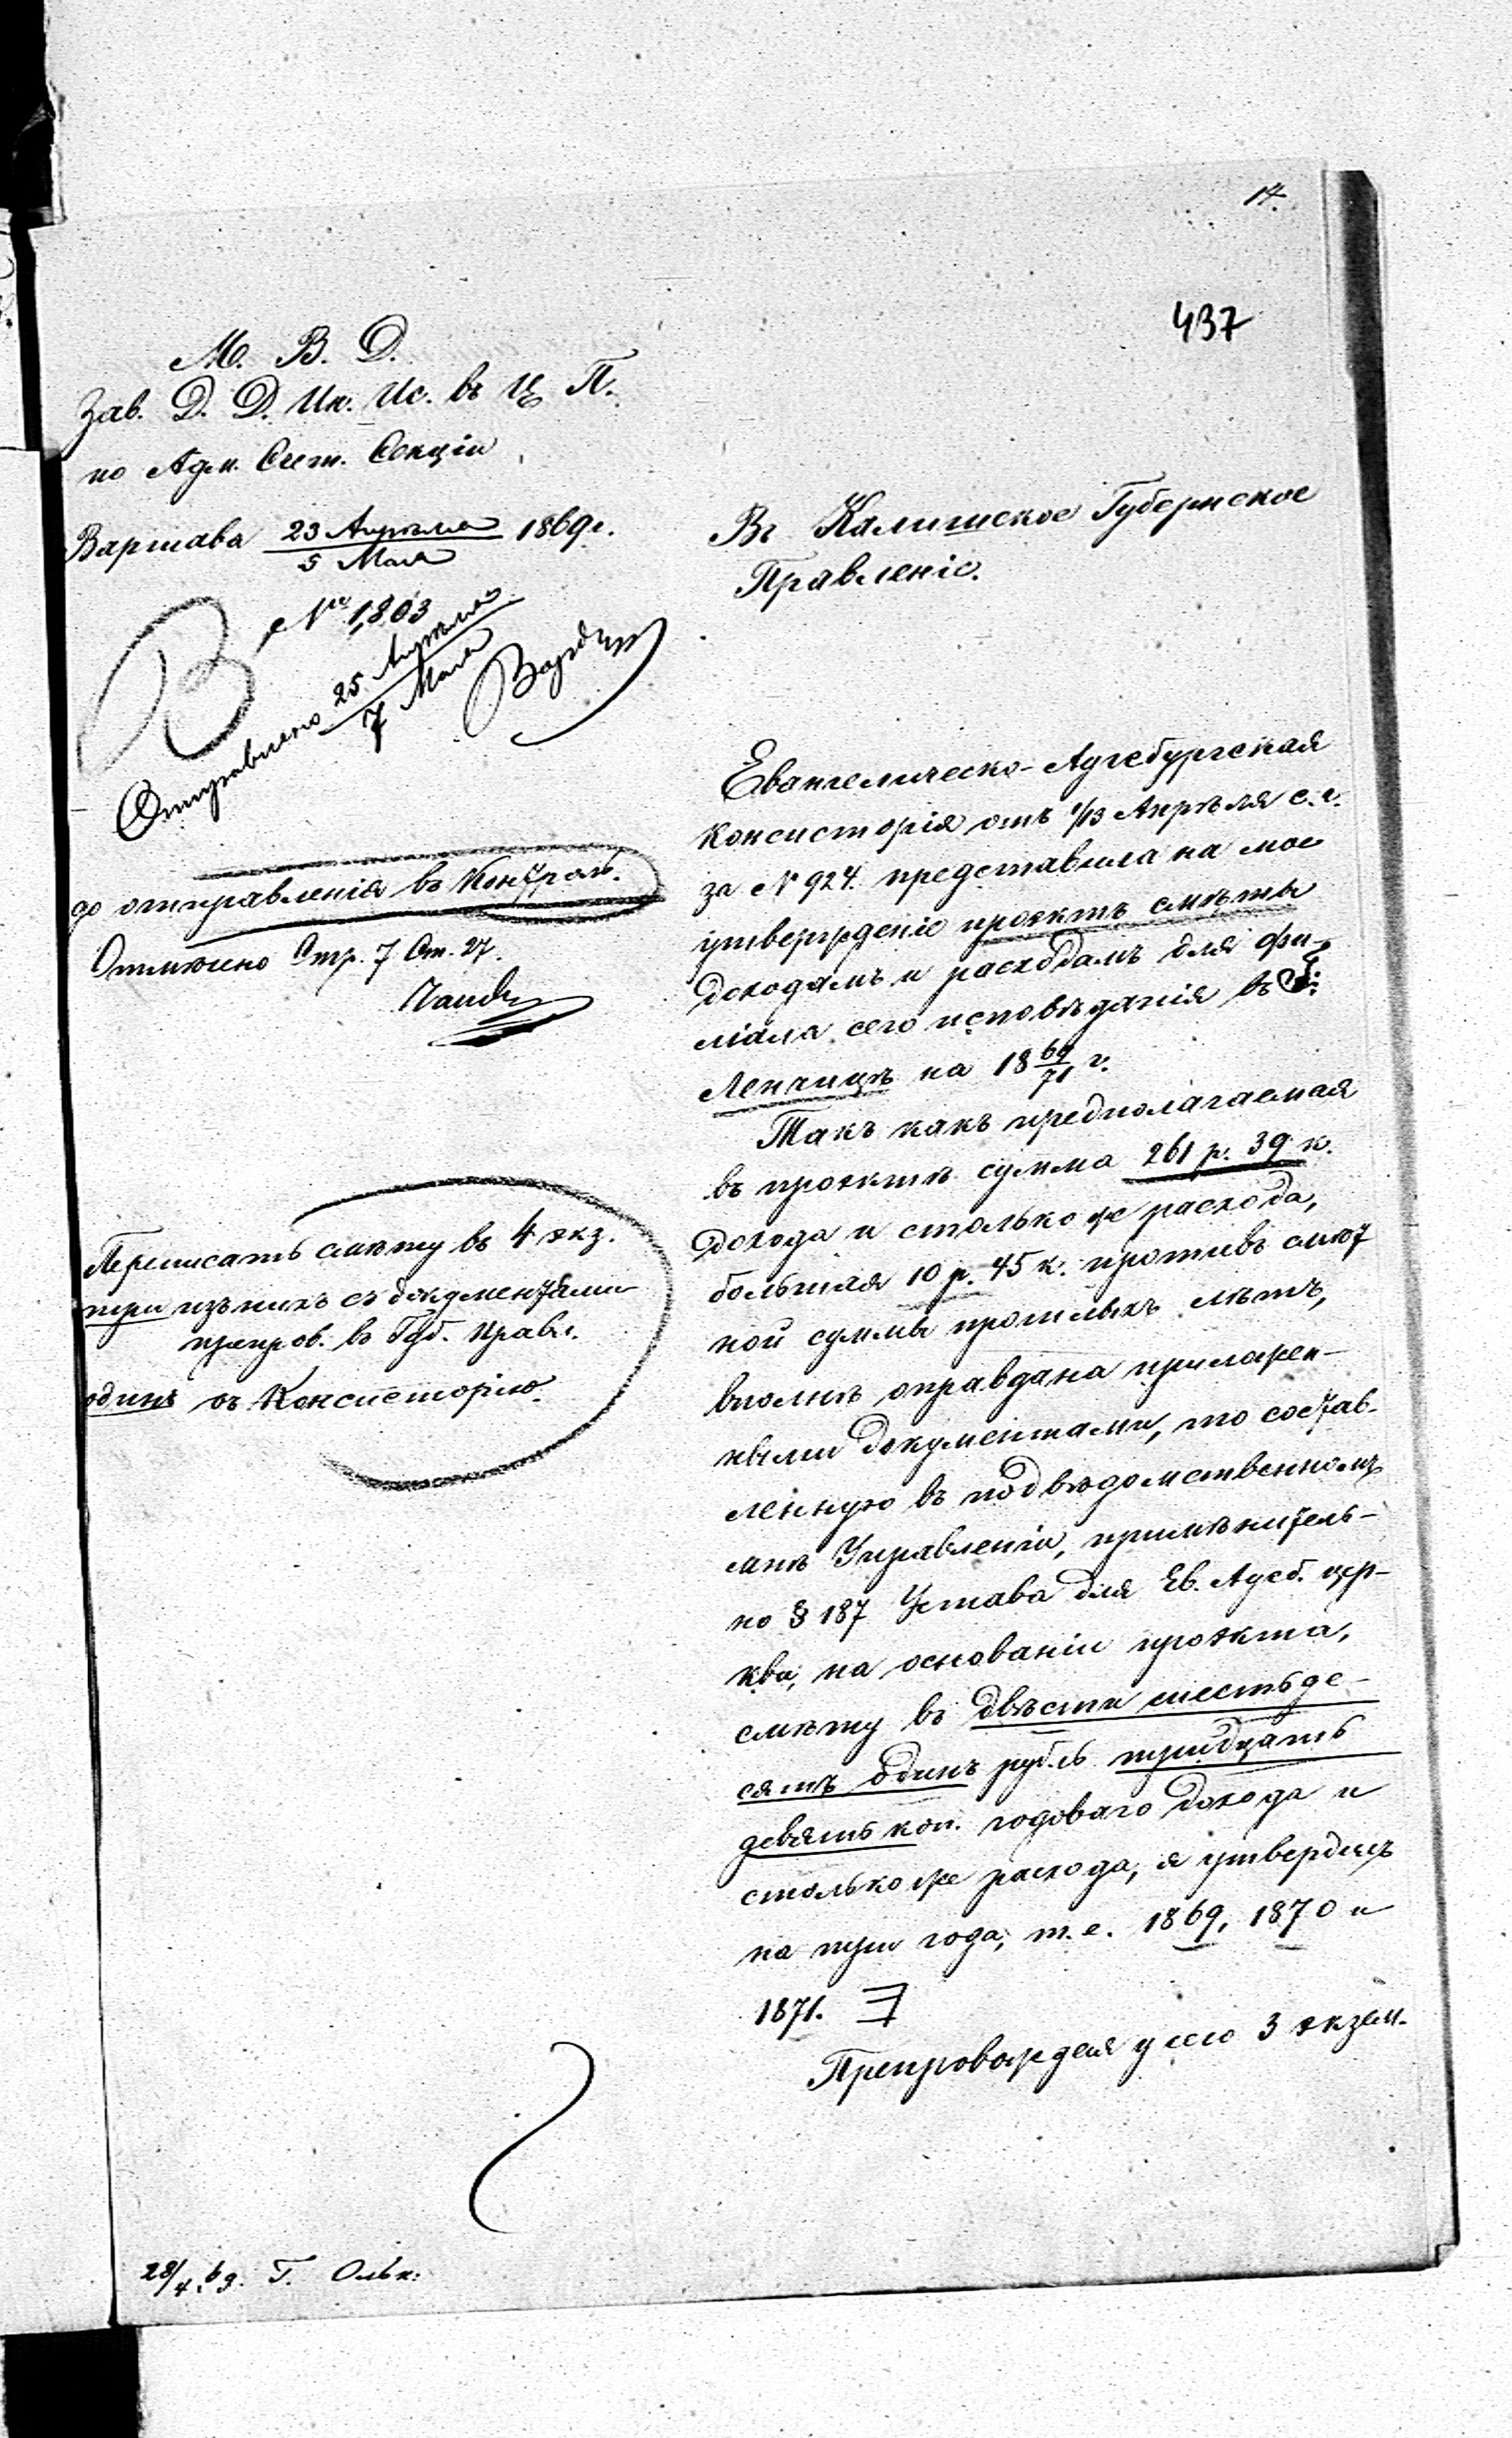 14.
437
М. В. Д.
Зав. Д. Д. Ин. Ис. въ Ц. П.
по Адм. Счет. Секціи
Варшава 23 Апрѣля / 5 Мая 1869 г.
№ 1,803
Отправлено 25 Апрѣля / 7 Мая
до отправленія въ Контрол.
Отмѣчено Стр. 7 Ст. 27.
Переписать смѣту въ 4 экз.
три изъ нихъ съ документами
препров. въ Губ. Правл.
одинъ въ Консисторію.
28/4. 69. Г.
Въ Калишское Губернское
Правленіе.
Евангелическо-Аугсбургская
Консисторія отъ 1/13 Апрѣля с. г.
за № 924. представила на мое
утвержденіе проэктъ смѣты
доходамъ и расходамъ для фи-
ліала сего исповѣданія въ
Ленчицѣ на 18 69/71 г.
Такъ какъ предполагаемая
въ проэктѣ сумма 261 р. 39 к.
дохода и столько же расхода,
большая 10 р. 45 к. противъ смѣт
ной суммы прошлыхъ лѣтъ,
вполнѣ оправдана приложен-
ными документами, то состав-
ленную въ подвѣдомственномъ
мнѣ Управленіи, примѣнитель-
но § 187 Устава для Ев. Аугсб. цер-
кви, на основаніи проэкта,
смѣту въ двѣсти шестьде-
сятъ одинъ рубль тридцать
девять коп. годоваго дохода и
столько же расхода, я утвердилъ
на три года, т. е. 1869, 1870 и
1871.
Препровождая у сего 3 экзем.